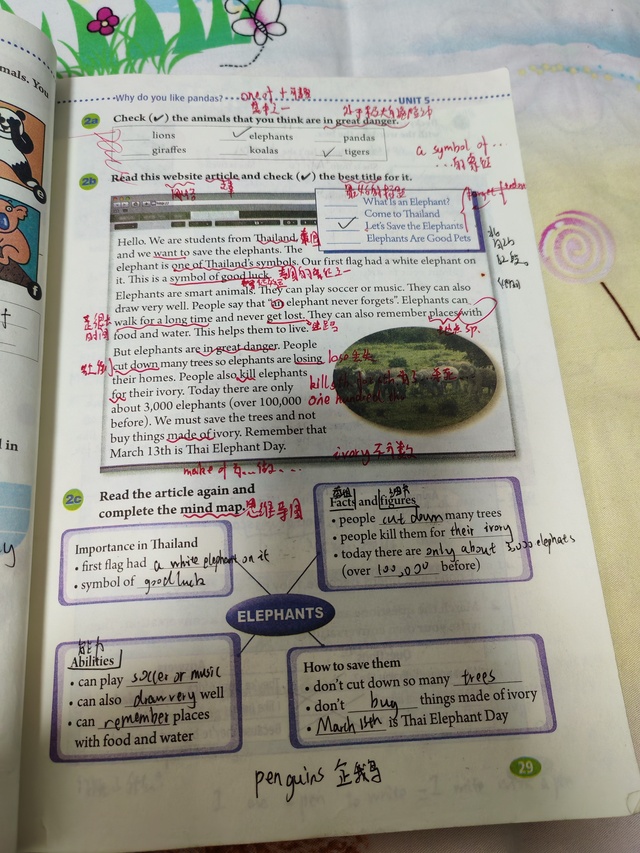 mals. You
Why do you like pandas?
UNIT 5
one of 十
之一
2a Check (✓) the animals that you think are in great danger.
lions ✓ elephants pandas
giraffes koalas ✓ tigers
a symbol of …
…的象征
2b Read this website article and check (✓) the best title for it.
网站 文章
What is an Elephant?
Come to Thailand
✓ Let's Save the Elephants
Elephants Are Good Pets
Hello. We are students from Thailand, 泰国
and we want to save the elephants. The
elephant is one of Thailand's symbols. Our first flag had a white elephant on
it. This is a symbol of good luck.
Elephants are smart animals. They can play soccer or music. They can also
draw very well. People say that "an elephant never forgets". Elephants can
walk for a long time and never get lost. They can also remember places with
food and water. This helps them to live.
But elephants are in great danger. People
cut down many trees so elephants are losing
their homes. People also kill elephants
for their ivory. Today there are only
about 3,000 elephants (over 100,000
before). We must save the trees and not
buy things made of ivory. Remember that
March 13th is Thai Elephant Day.
ivory 不可数
2c Read the article again and
complete the mind map. 思维导图
Importance in Thailand
• first flag had a white elephant on it
• symbol of good luck
Facts and figures
• people cut down many trees
• people kill them for their ivory
• today there are only about 3,000 elephats
(over 100,000 before)
ELEPHANTS
能力
Abilities
• can play soccer or music
• can also draw very well
• can remember places
with food and water
How to save them
• don't cut down so many trees
• don't buy things made of ivory
• March 13th is Thai Elephant Day
penguins 企鹅
29